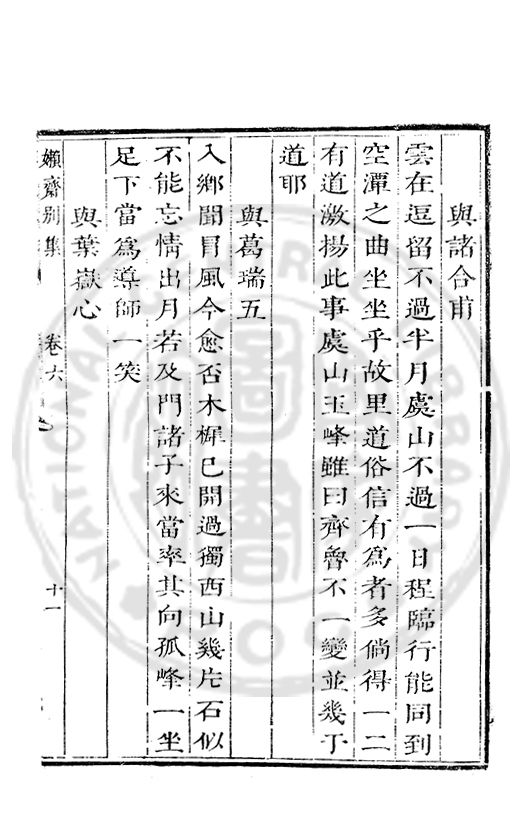 與諸合甫
雲在逗留不過半月虞山不過一日程臨行能同到
空潭之曲坐坐乎故里道俗信有為者多倘得一二
有道激揚此事虞山玉峰雖曰齊魯不一變並幾于
道耶
與葛瑞五
入鄉聞冒風今愈否木樨已開過獨西山幾片石似
不能忘情出月若及門諸子來當率其向孤峰一坐
足下當為導師一笑
與葉嶽心
嬾齋別集
卷六
十一